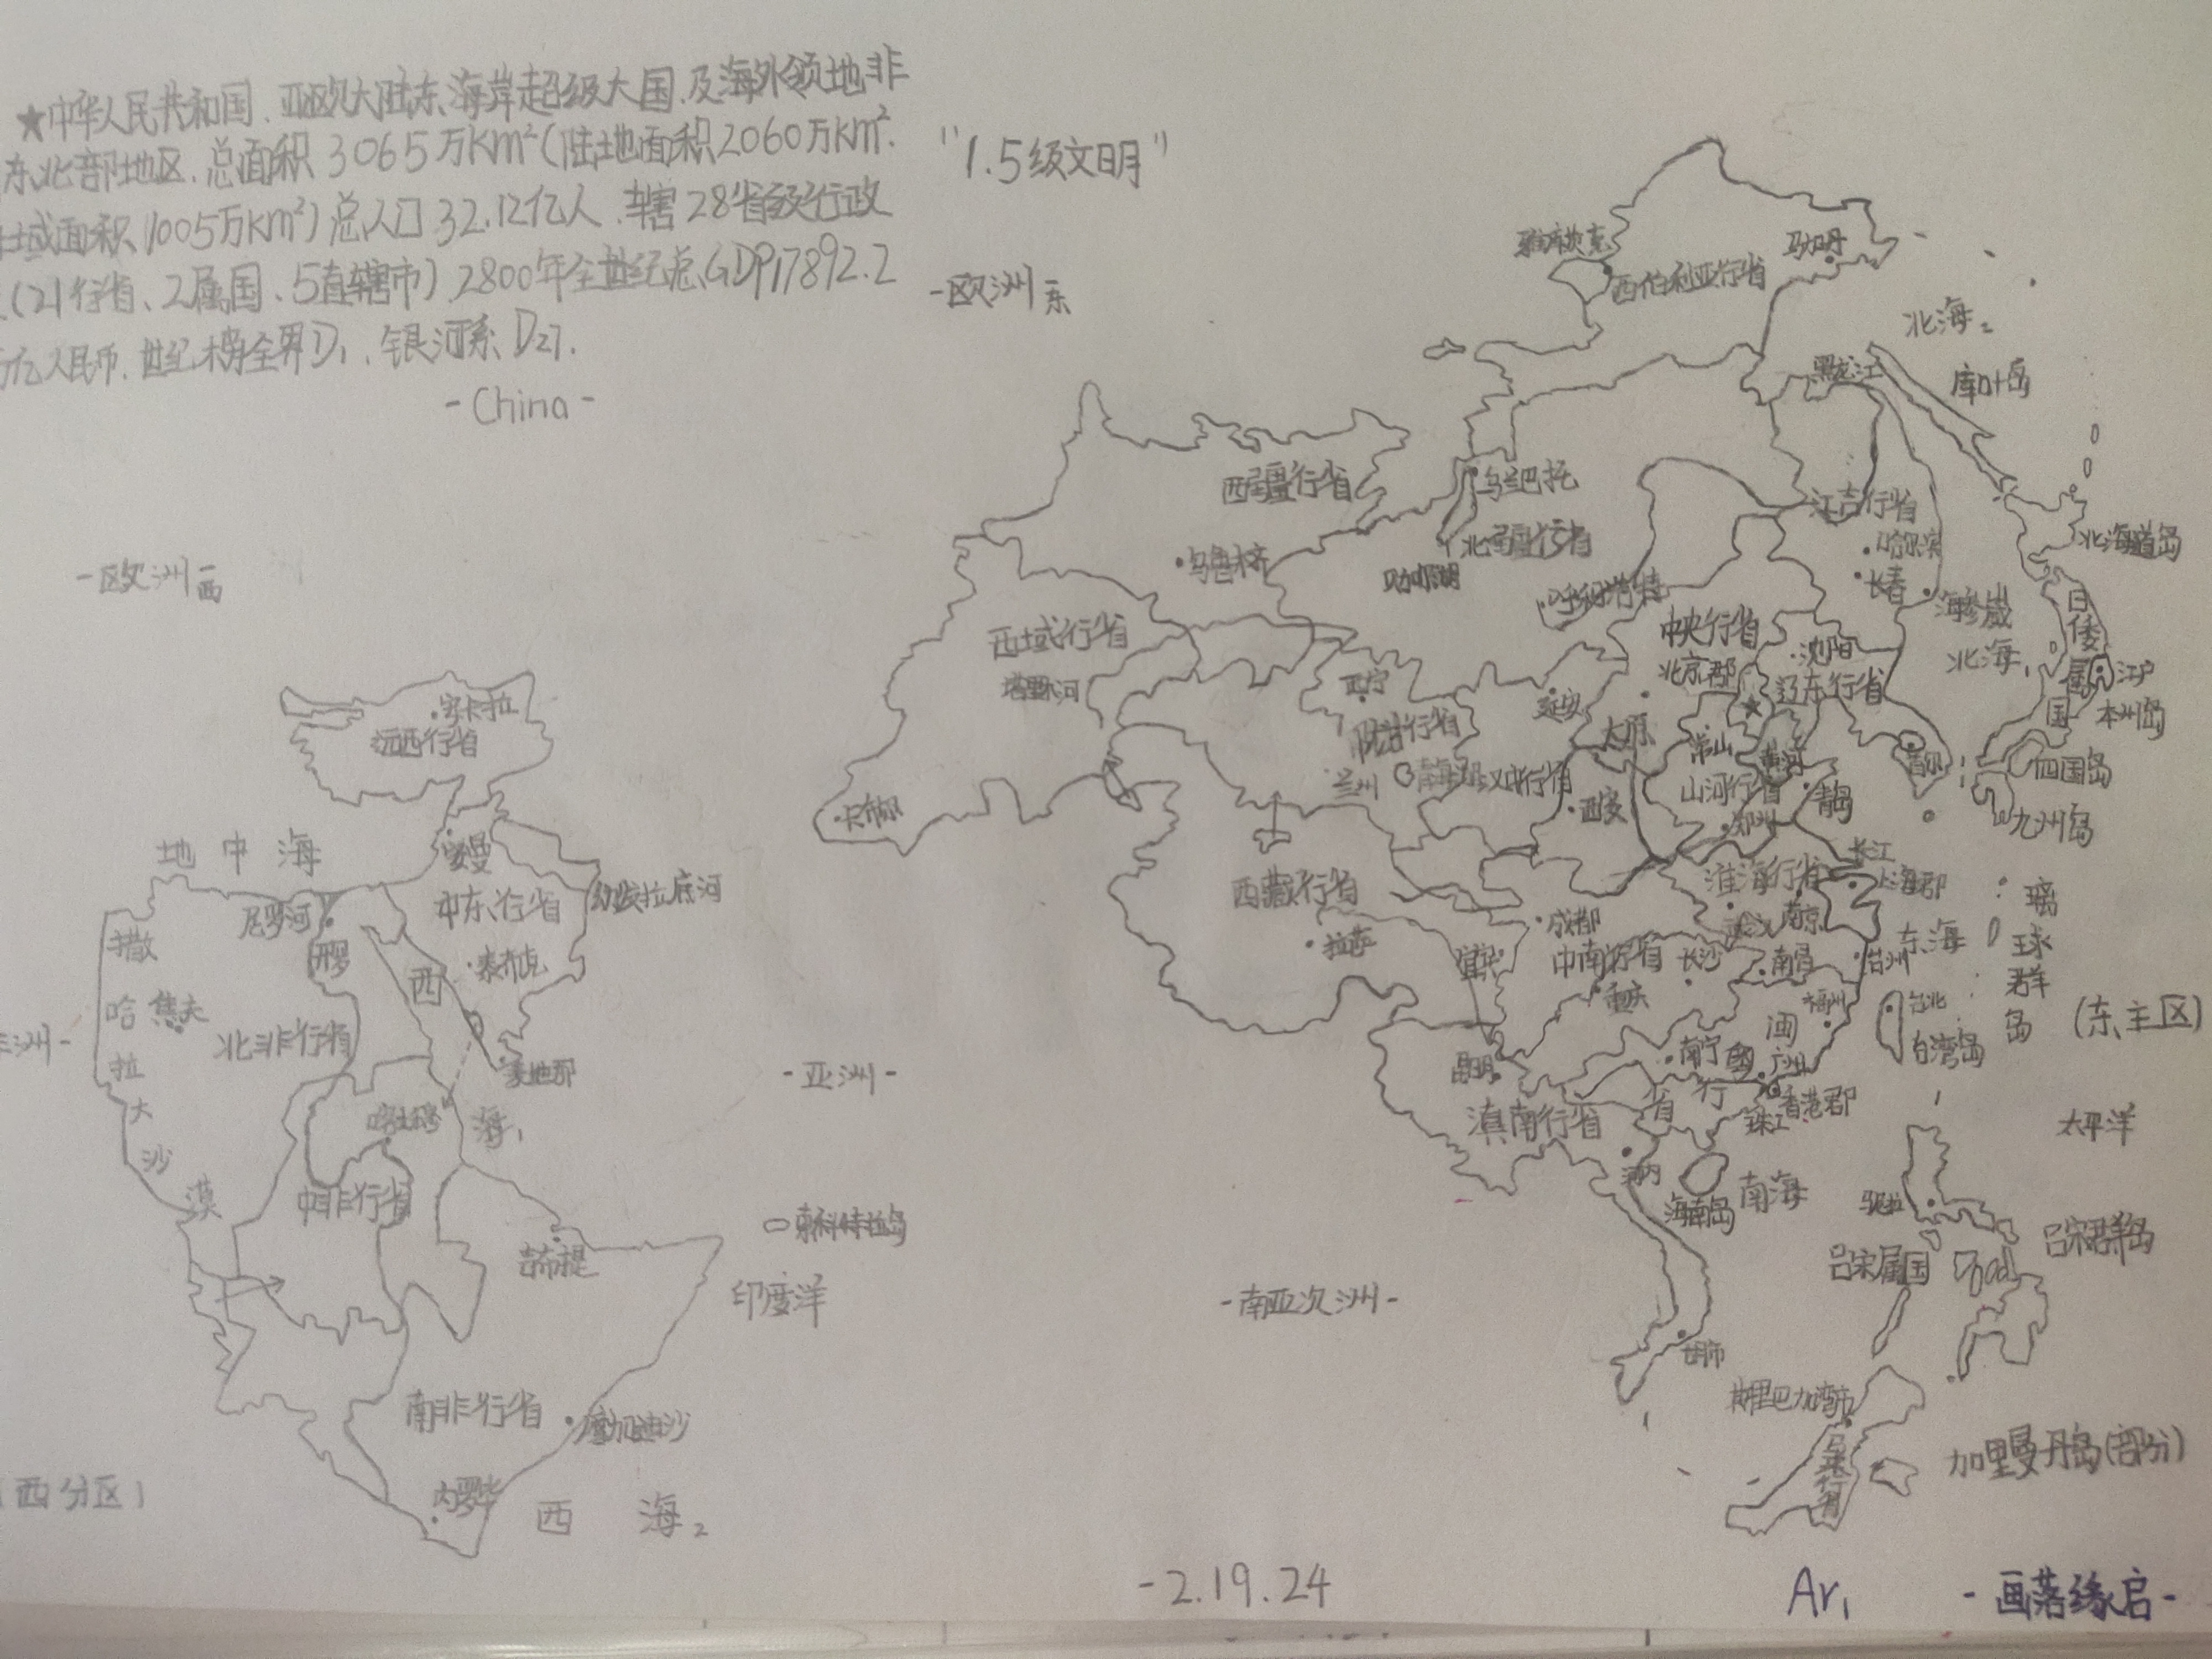 ★中华人民共和国、亚欧大陆东海岸超级大国.及海外领地非
东北部地区.总面积3065万km²(陆地面积2060万km².
域面积1005万km²)总人口32.12亿人.辖28省级行政
(21行省、2属国、5直辖市).2800年全世纪总GDP17892.2
亿人民币.世纪榜全界D₁、银河系D27.
-China-
"1.5级文明"
-欧洲东
-欧洲西
雅库茨克
马加丹
西伯利亚行省
北海₂
黑龙江
库叶岛
西疆行省
乌兰巴托
江吉行省
北疆行省
北海道岛
乌鲁木齐
贝加尔湖
哈尔滨
长春
海参崴
呼和浩特
日倭属国
西域行省
中央行省
沈阳
北海₁
塔里木河
西宁
北京郡
辽东行省
江户
本州岛
延安
陕甘行省
太原
常山
黄河
首尔
四国岛
兰州
青海湖
汉中行省
山河行省
青岛
卡布尔
西安
郑州
九州岛
安卡拉
远西行省
地中海
安曼
长江
西藏行省
淮海行省
上海郡
琉球群岛
尼罗河
中东行省
幼发拉底河
成都
武汉
南京
拉萨
宜宾
中南行省
长沙
南昌
台州
东海
撒哈拉大沙漠
开罗
西海₁
泰布克
重庆
福州
台北
台湾岛
(东主区)
焦夫
北非行省
闽粤行省
南宁
广州
麦地那
-亚洲-
昆明
香港郡
珠江
喀土穆
滇南行省
太平洋
中非行省
河内
海南岛
南海
索科特拉岛
马尼拉
吕宋群岛
吉布提
吕宋属国
印度洋
-南亚次洲-
胡市
斯里巴加湾市
南非行省
摩加迪沙
加里曼丹岛(部分)
(西分区)
内罗毕
西海₂
-2.19.24
Ar₁
-画落缘启-